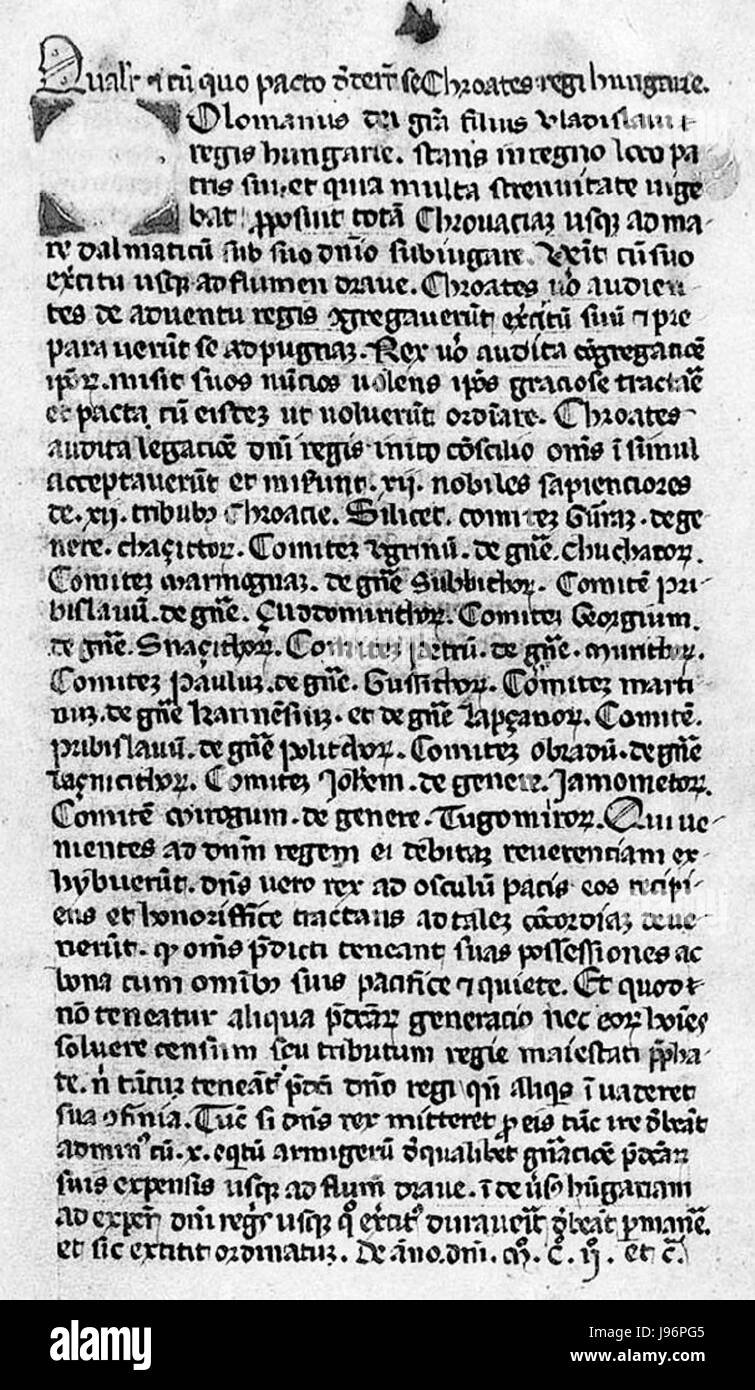 Qualr̄ ⁊ cū quo pacto d̄deir̄t se Chroates regi hungarie.
Olomanus dei grā filius vladislaui
regis hungarie. stans in regno loco pa
tris sui. et quia multa strenuitate uige
bat ꝓposuit totā Chrouaciaꝫ usqꝫ ad ma-
re dalmaticū sub suo dn̄io subiugare. Venit cū suo
ex̄citu usqꝫ ad flumen draue. Chroates ūo audien
tes de aduentu regis ꝯgregauerūt ex̄citū suū ⁊ pre
parauerūt se ad pugnaꝫ. Rex ūo audita cōgregacōē
ipōꝝ. misit suos nūcios uolens ip̄os graciose tractār̄e
et pacta cū eisdeꝫ ut uoluerūt ordīare. Chroates
audita legacōē dn̄i regis inito cōscilio om̄s ī simul
acceptauerūt et misūnt. xij. nobiles sapienciores
de. xij. tribubꝫ Chroacie. Silicet. comiteꝫ Guraꝫ. de ge
nere. chaçittoꝝ. Comiteꝫ vgrinū. de gn̄e. chuchatoꝝ.
Comiteꝫ marmognaꝫ. de gn̄e Subbithoꝝ. Comitē pri-
bislauū. de gn̄e. Çudomirithoꝝ. Comiteꝫ Georgium.
de gn̄e. Snaçithoꝝ. Comiteꝫ petrū. de gn̄e. murithoꝝ.
Comiteꝫ pauluꝫ. de gn̄e. Gussithoꝝ. Comiteꝫ marti
nuꝫ. de gn̄e karinēsiuꝫ. et de gn̄e lapçanoꝝ. Comitē.
pribislauū. de gn̄e polithoꝝ. Comiteꝫ obradū. de gn̄e
laçnicithoꝝ. Comiteꝫ Johem. de genere. Jamometoꝝ.
Comitē mirogum. de genere. Tugomiroꝝ. Qui ue-
nientes ad dn̄m regem ei debitaꝫ reuerenciam ex-
hybuerūt. dn̄s uero rex ad osculū pacis eos recipi-
ens et honoriffice tractans ad taleꝫ cōcordiaꝫ deue-
nerūt. ꝙ om̄s p̄dicti teneant suas possessiones ac
bona cum omībꝫ suis pacifice ⁊ quiete. Et quod
nō teneatur aliqua p̄dc̄aꝝ generacio nec eoꝝ hoīes
soluere censum seu tributum regie maiestati p̄pha-
te. n̄ tm̄uꝫ teneāt p̄dc̄i dn̄o regi qn̄ aliqs̄ īuaderet
sua ꝯfinia. Tūc si dn̄s rex mitteret ꝓ eis tūc ire d̄beāt
ad minꝰ cū. x. eq̄tū armigerū d̄ qualibet gn̄acōē p̄dc̄aꝝ
suis expensis usqꝫ ad flum̄ draue. īde ūsꝰ hūgaciam
ad expen̄ dn̄i regis usqꝫ qͦ ex̄citꝰ duraueit̄ d̄beāt ꝑmanē.
et sic extitit ordinatuꝫ. De āno. dn̄i. mͦ. cͦ. ijͦ. et c̄.
alamy
Image ID: J96PG5
www.alamy.com